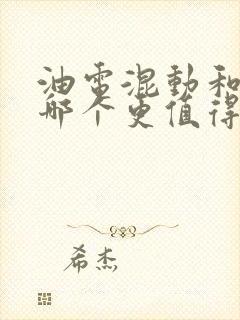 油電混動和
哪个更值得
希杰